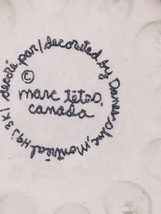 decoré par/decorated by Danesh, Inc, Montréal H9J 3K1
©
marc tetro,
canada